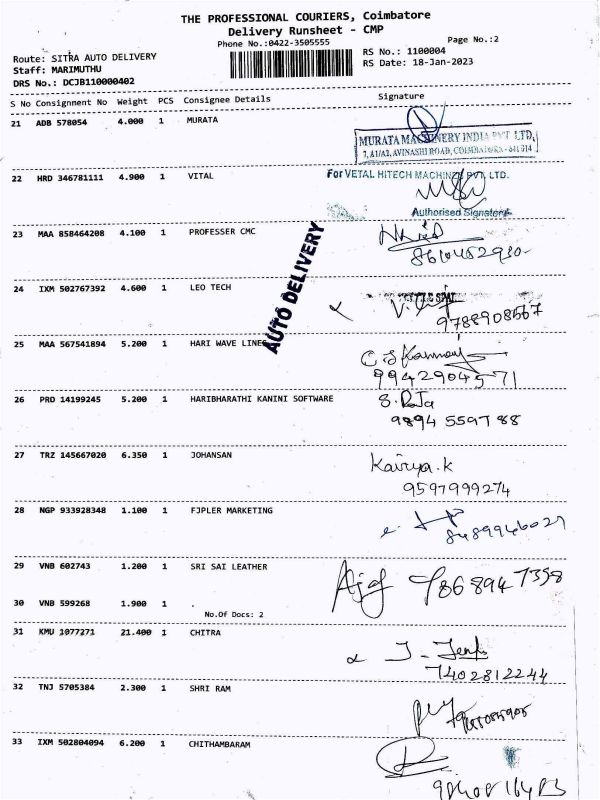 THE PROFESSIONAL COURIERS, Coimbatore
Delivery Runsheet - CMP
Phone No.:0422-3505555
Page No.:2
Route: SITRA AUTO DELIVERY
RS No.: 1100004
Staff: MARIMUTHU
RS Date: 18-Jan-2023
DRS No.: DCJB110000402
S No Consignment No Weight PCS Consignee Details Signature
21 ADB 578054 4.000 1 MURATA
MURATA MACHINERY INDIA PVT LTD,
7, A1/A2, AVINASHI ROAD, COIMBATORE - 641 014
22 HRD 346781111 4.900 1 VITAL
For VETAL HITECH MACHINE PVT. LTD.
Authorised Signatory
23 MAA 858464208 4.100 1 PROFESSER CMC
AUTO DELIVERY
24 IXM 502767392 4.600 1 LEO TECH
9788908567
25 MAA 567541894 5.200 1 HARI WAVE LINES
9942904571
26 PRD 14199245 5.200 1 HARIBHARATHI KANINI SOFTWARE
S. Raja
9894 559788
27 TRZ 145667020 6.350 1 JOHANSAN
Kavya.k
9597999274
28 NGP 933928348 1.100 1 FJPLER MARKETING
8489946029
29 VNB 602743 1.200 1 SRI SAI LEATHER
9868947398
30 VNB 599268 1.900 1 .
No.Of Docs: 2
31 KMU 1077271 21.400 1 CHITRA
7402812244
32 TNJ 5705384 2.300 1 SHRI RAM
33 IXM 502804094 6.200 1 CHITHAMBARAM